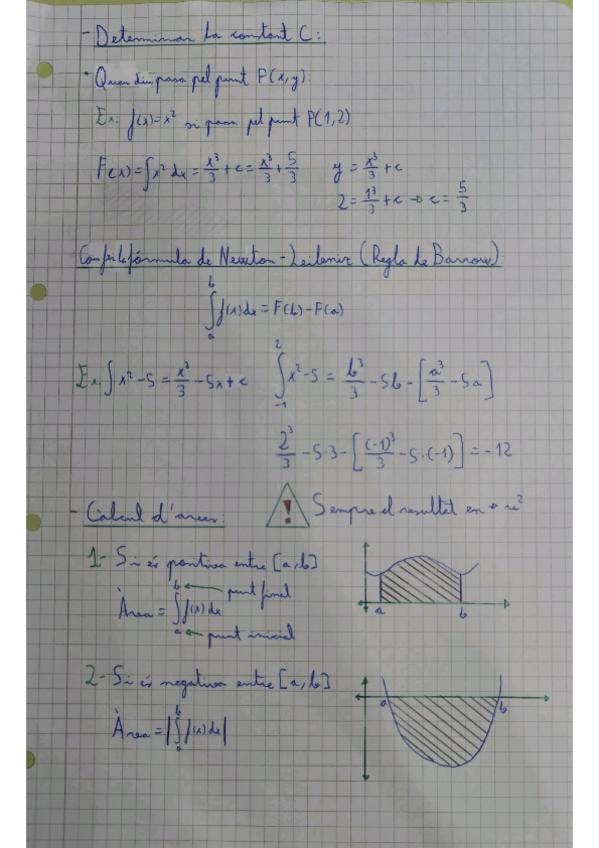 - Determinar la constant C:
· Quan diu passa pel punt P(x,y):
Ex: f(x)=x² si passa pel punt P(1,2)
F(x)=∫x² dx = x³/3 + c = x³/3 + 5/3 y = x³/3 + c
2 = 1³/3 + c → c = 5/3
Com fer la fórmula de Newton-Leibniz (Regla de Barrow):
∫ₐᵇ f(x)dx = F(b) - F(a)
Ex: ∫x² - 5 = x³/3 - 5x + c ∫₋₁² x² - 5 = b³/3 - 5b - [a³/3 - 5a]
2³/3 - 5·3 - [(-1)³/3 - 5·(-1)] = -12
- Càlcul d'àrees: ! Sempre el resultat en + u²
1- Si és positiva entre [a,b]
Àrea = ∫ₐᵇ f(x)dx
b ← punt final
a ← punt inicial
a b
2- Si és negativa entre [a,b]
a b
Àrea = |∫ₐᵇ f(x)dx|